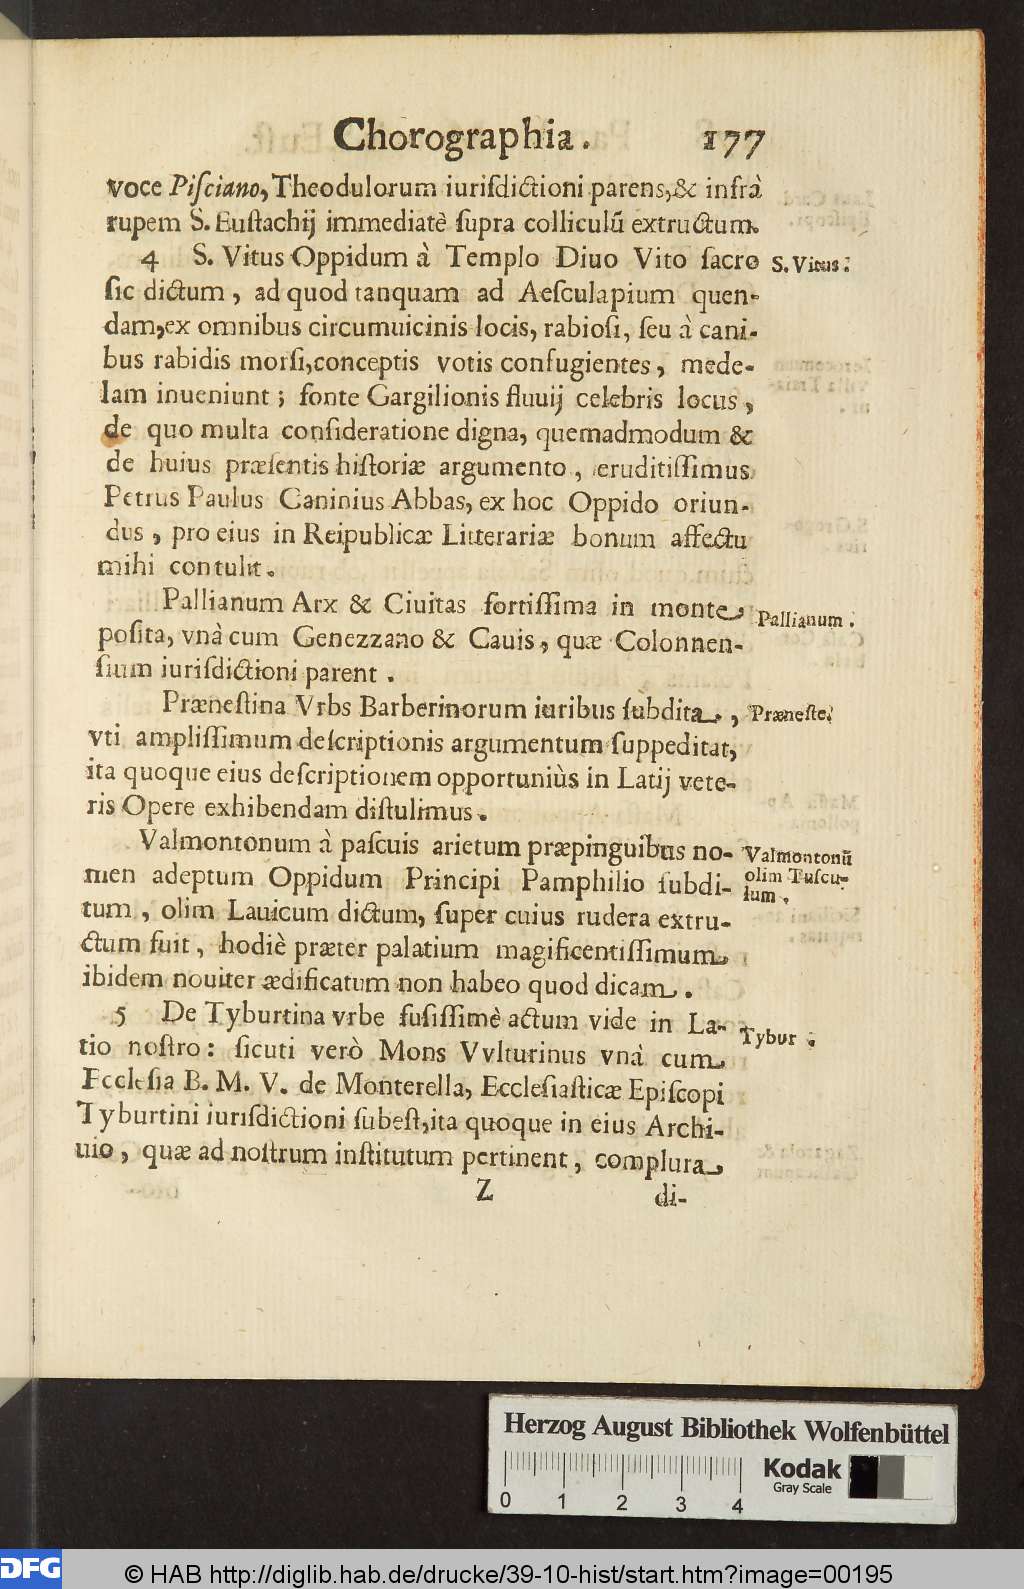 Chorographia. 177
voce Piſciano, Theodulorum iuriſdictioni parens, & infrà
rupem S. Euſtachij immediatè ſupra colliculū extructum.
4 S. Vitus Oppidum à Templo Diuo Vito ſacro
S. Vitus.
ſic dictum, ad quod tanquam ad Aeſculapium quen-
dam, ex omnibus circumuicinis locis, rabioſi, ſeu à cani-
bus rabidis morſi, conceptis votis confugientes, mede-
lam inueniunt; fonte Gargilionis fluuij celebris locus,
de quo multa conſideratione digna, quemadmodum &
de huius præſentis hiſtoriæ argumento, eruditiſſimus
Petrus Paulus Caninius Abbas, ex hoc Oppido oriun-
dus, pro eius in Reipublicæ Litterariæ bonum affectu
mihi contulit.
Pallianum Arx & Ciuitas fortiſſima in monte
Pallianum.
poſita, vnà cum Genezzano & Cauis, quæ Colonnen-
ſium iuriſdictioni parent.
Præneſtina Vrbs Barberinorum iuribus ſubdita,
Præneſte.
vti ampliſſimum deſcriptionis argumentum ſuppeditat,
ita quoque eius deſcriptionem opportuniùs in Latij vete-
ris Opere exhibendam diſtulimus.
Valmontonum à paſcuis arietum præpinguibus no-
Valmontonū
men adeptum Oppidum Principi Pamphilio ſubdi-
olim Tuſcu-
lum.
tum, olim Lauicum dictum, ſuper cuius rudera extru-
ctum fuit, hodiè præter palatium magificentiſſimum
ibidem nouiter ædificatum non habeo quod dicam.
5 De Tyburtina vrbe fuſiſſimè actum vide in La-
Tybur.
tio noſtro: ſicuti verò Mons Vvlturinus vnà cum
Eccleſia B. M. V. de Monterella, Eccleſiaſticæ Epiſcopi
Tyburtini iuriſdictioni ſubeſt, ita quoque in eius Archi-
uio, quæ ad noſtrum inſtitutum pertinent, complura
Z di-
Herzog August Bibliothek Wolfenbüttel
Kodak
Gray Scale
0 1 2 3 4
DFG © HAB http://diglib.hab.de/drucke/39-10-hist/start.htm?image=00195